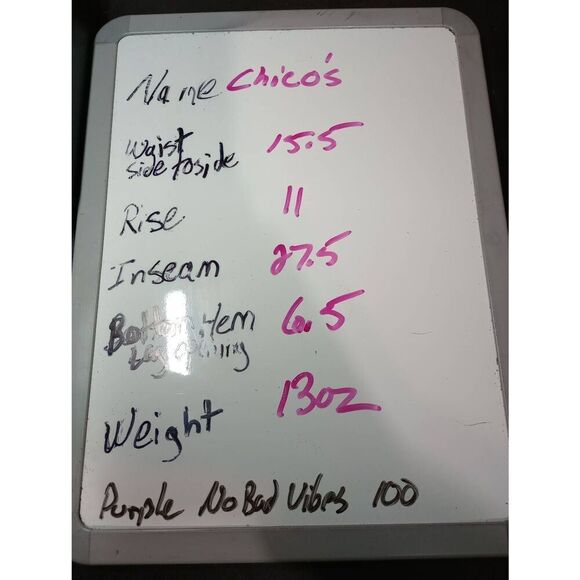 Name Chico's
Waist 15.5
side to side
Rise 11
Inseam 27.5
Bottom Hem 6.5
Leg opening
Weight 13oz
Purple No Bad Vibes 100